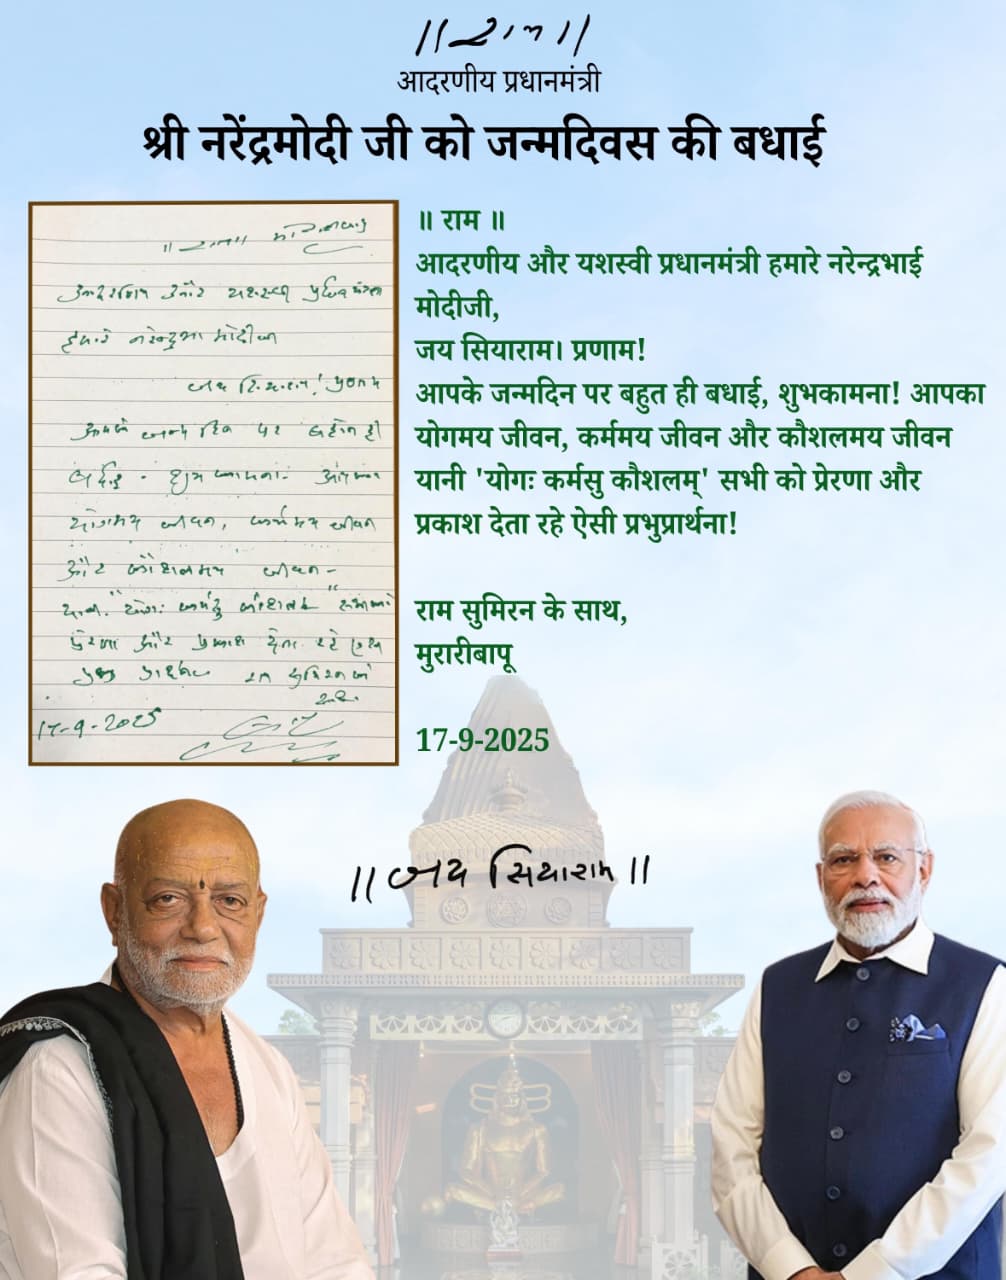 ॥ राम ॥
आदरणीय प्रधानमंत्री
श्री नरेंद्रमोदी जी को जन्मदिवस की बधाई
॥ राम ॥
आदरणीय और यशस्वी प्रधानमंत्री
हमारे नरेन्द्रभाई मोदीजी
जय सियाराम! प्रणाम
आपके जन्म दिन पर बहोत ही
बधाई - शुभ कामना
योगमय जीवन, कर्ममय जीवन
और कौशलमय जीवन -
प्रेरणा और प्रकाश देता रहे
17-9-2025
॥ राम ॥
आदरणीय और यशस्वी प्रधानमंत्री हमारे नरेन्द्रभाई
मोदीजी,
जय सियाराम। प्रणाम!
आपके जन्मदिन पर बहुत ही बधाई, शुभकामना! आपका
योगमय जीवन, कर्ममय जीवन और कौशलमय जीवन
यानी 'योगः कर्मसु कौशलम्' सभी को प्रेरणा और
प्रकाश देता रहे ऐसी प्रभुप्रार्थना!
राम सुमिरन के साथ,
मुरारीबापू
17-9-2025
॥ जय सियाराम ॥